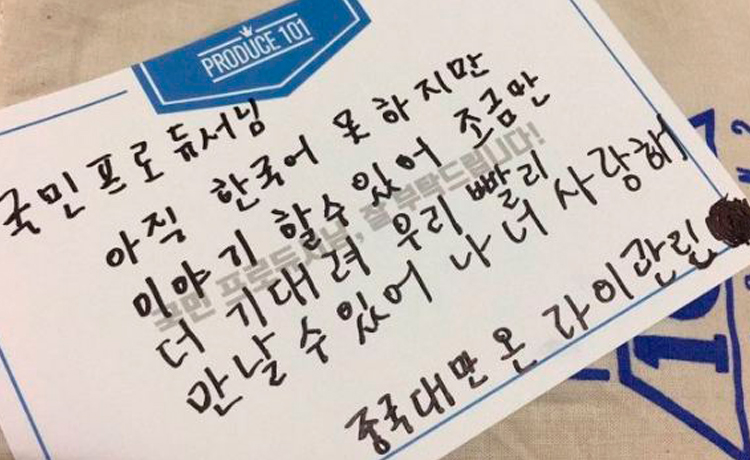 PRODUCE 101
국민 프로듀서님
아직 한국어 못 하지만
이야기 할수 있어 조금만
더 기대려 우리 빨리
만날 수 있어 나 너 사랑해
중국대만 온 라이관린
국민 프로듀서님, 잘 부탁드립니다!